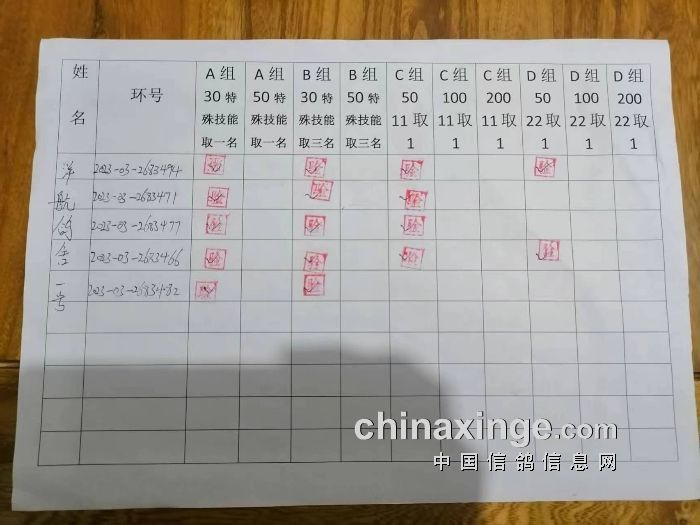 姓名
环号
A 组
30 特
殊技能
取一名
A 组
50 特
殊技能
取一名
B 组
30 特
殊技能
取三名
B 组
50 特
殊技能
取三名
C 组
50
11 取
1
C 组
100
11 取
1
C 组
200
11 取
1
D 组
50
22 取
1
D 组
100
22 取
1
D 组
200
22 取
1
洋航鸽舍一号
2023-03-2683494 验 验 验 验
2023-03-2683471 验 验 验
2023-03-2683477 验 验 验
2023-03-2683466 验 验 验 验
2023-03-2683482 验 验
chinaxinge.com
中国信鸽信息网